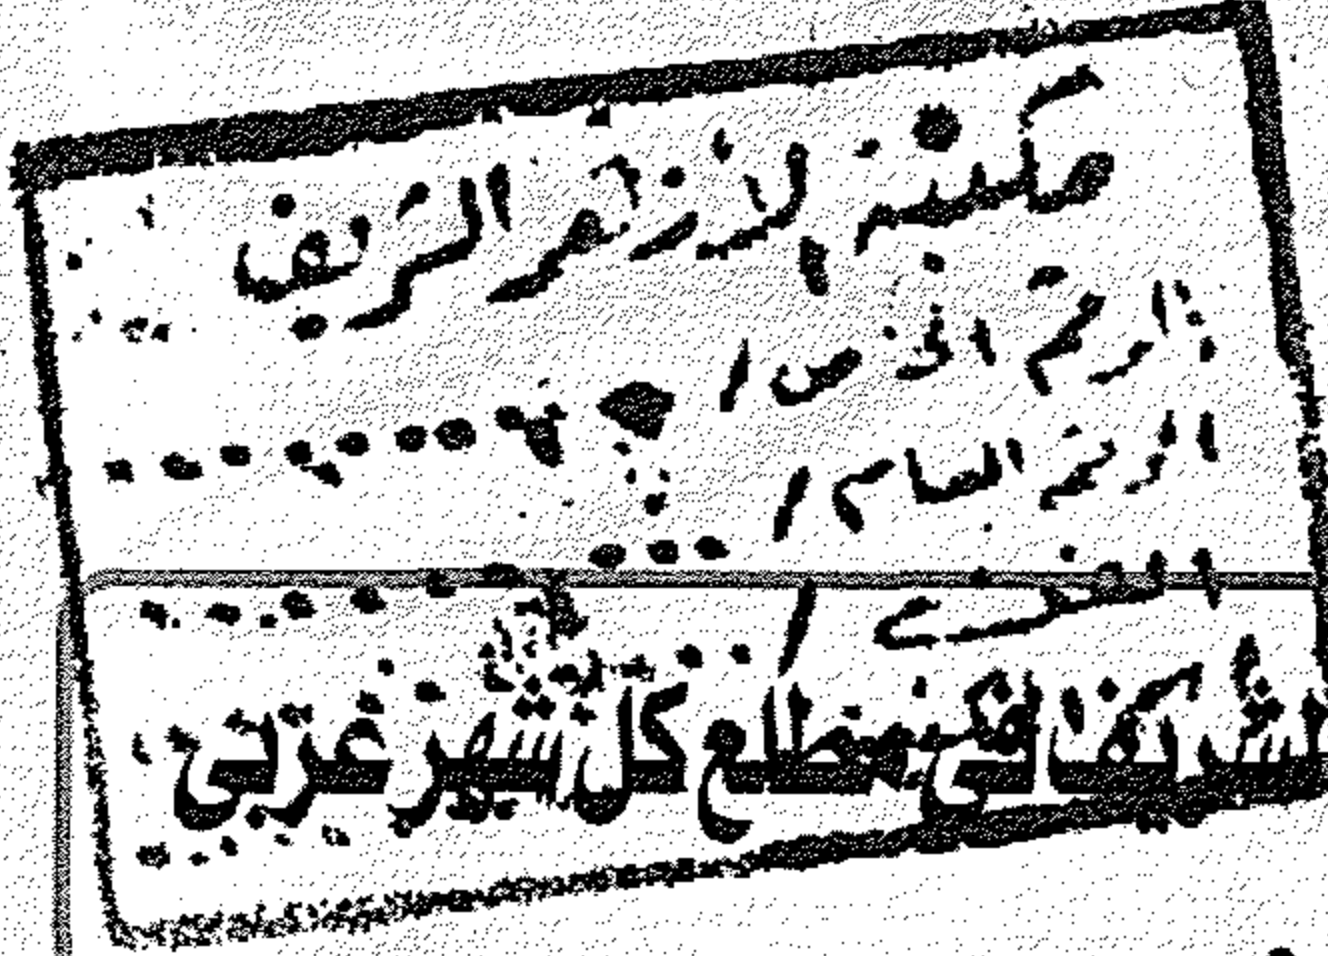 مكتبة الأزهر الشريف
الرقم الخاص /
الرقم العام /
الفن /
الشريف في مطلع كل شهر عربي